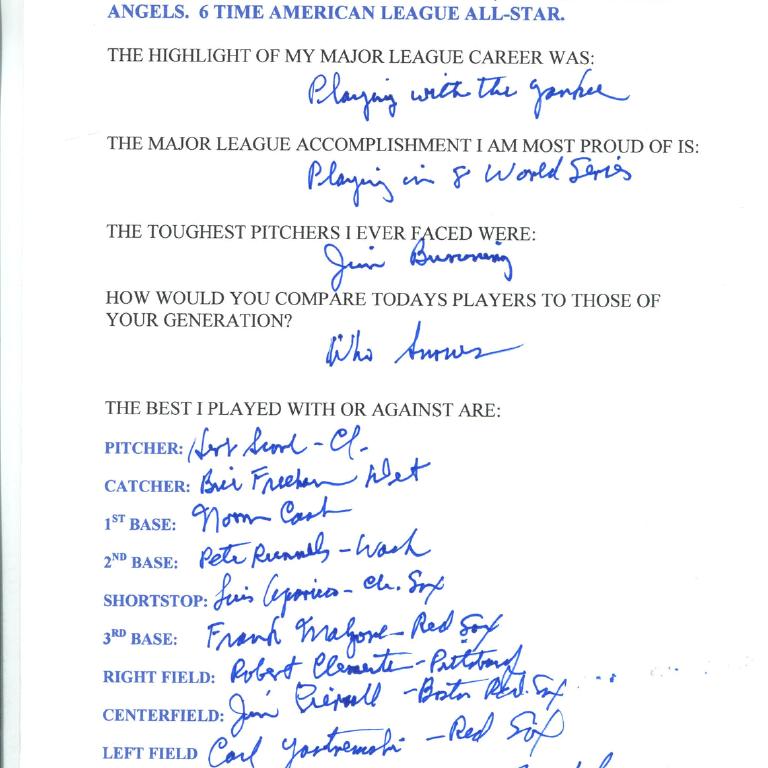 ANGELS. 6 TIME AMERICAN LEAGUE ALL-STAR.
THE HIGHLIGHT OF MY MAJOR LEAGUE CAREER WAS:
Playing with the Yankee
THE MAJOR LEAGUE ACCOMPLISHMENT I AM MOST PROUD OF IS:
Playing in 8 World Series
THE TOUGHEST PITCHERS I EVER FACED WERE:
Jim Bunning
HOW WOULD YOU COMPARE TODAYS PLAYERS TO THOSE OF
YOUR GENERATION?
Who knows
THE BEST I PLAYED WITH OR AGAINST ARE:
PITCHER: Herb Score - Cl.
CATCHER: Bill Freehan Det
1ST BASE: Norm Cash
2ND BASE: Pete Runnels - Wash
SHORTSTOP: Luis Aparicio - Ch. Sox
3RD BASE: Frank Malzone - Red Sox
RIGHT FIELD: Robert Clemente - Pittsburg
CENTERFIELD: Jim Piersall - Boston Red Sox
LEFT FIELD Carl Yastremski - Red Sox